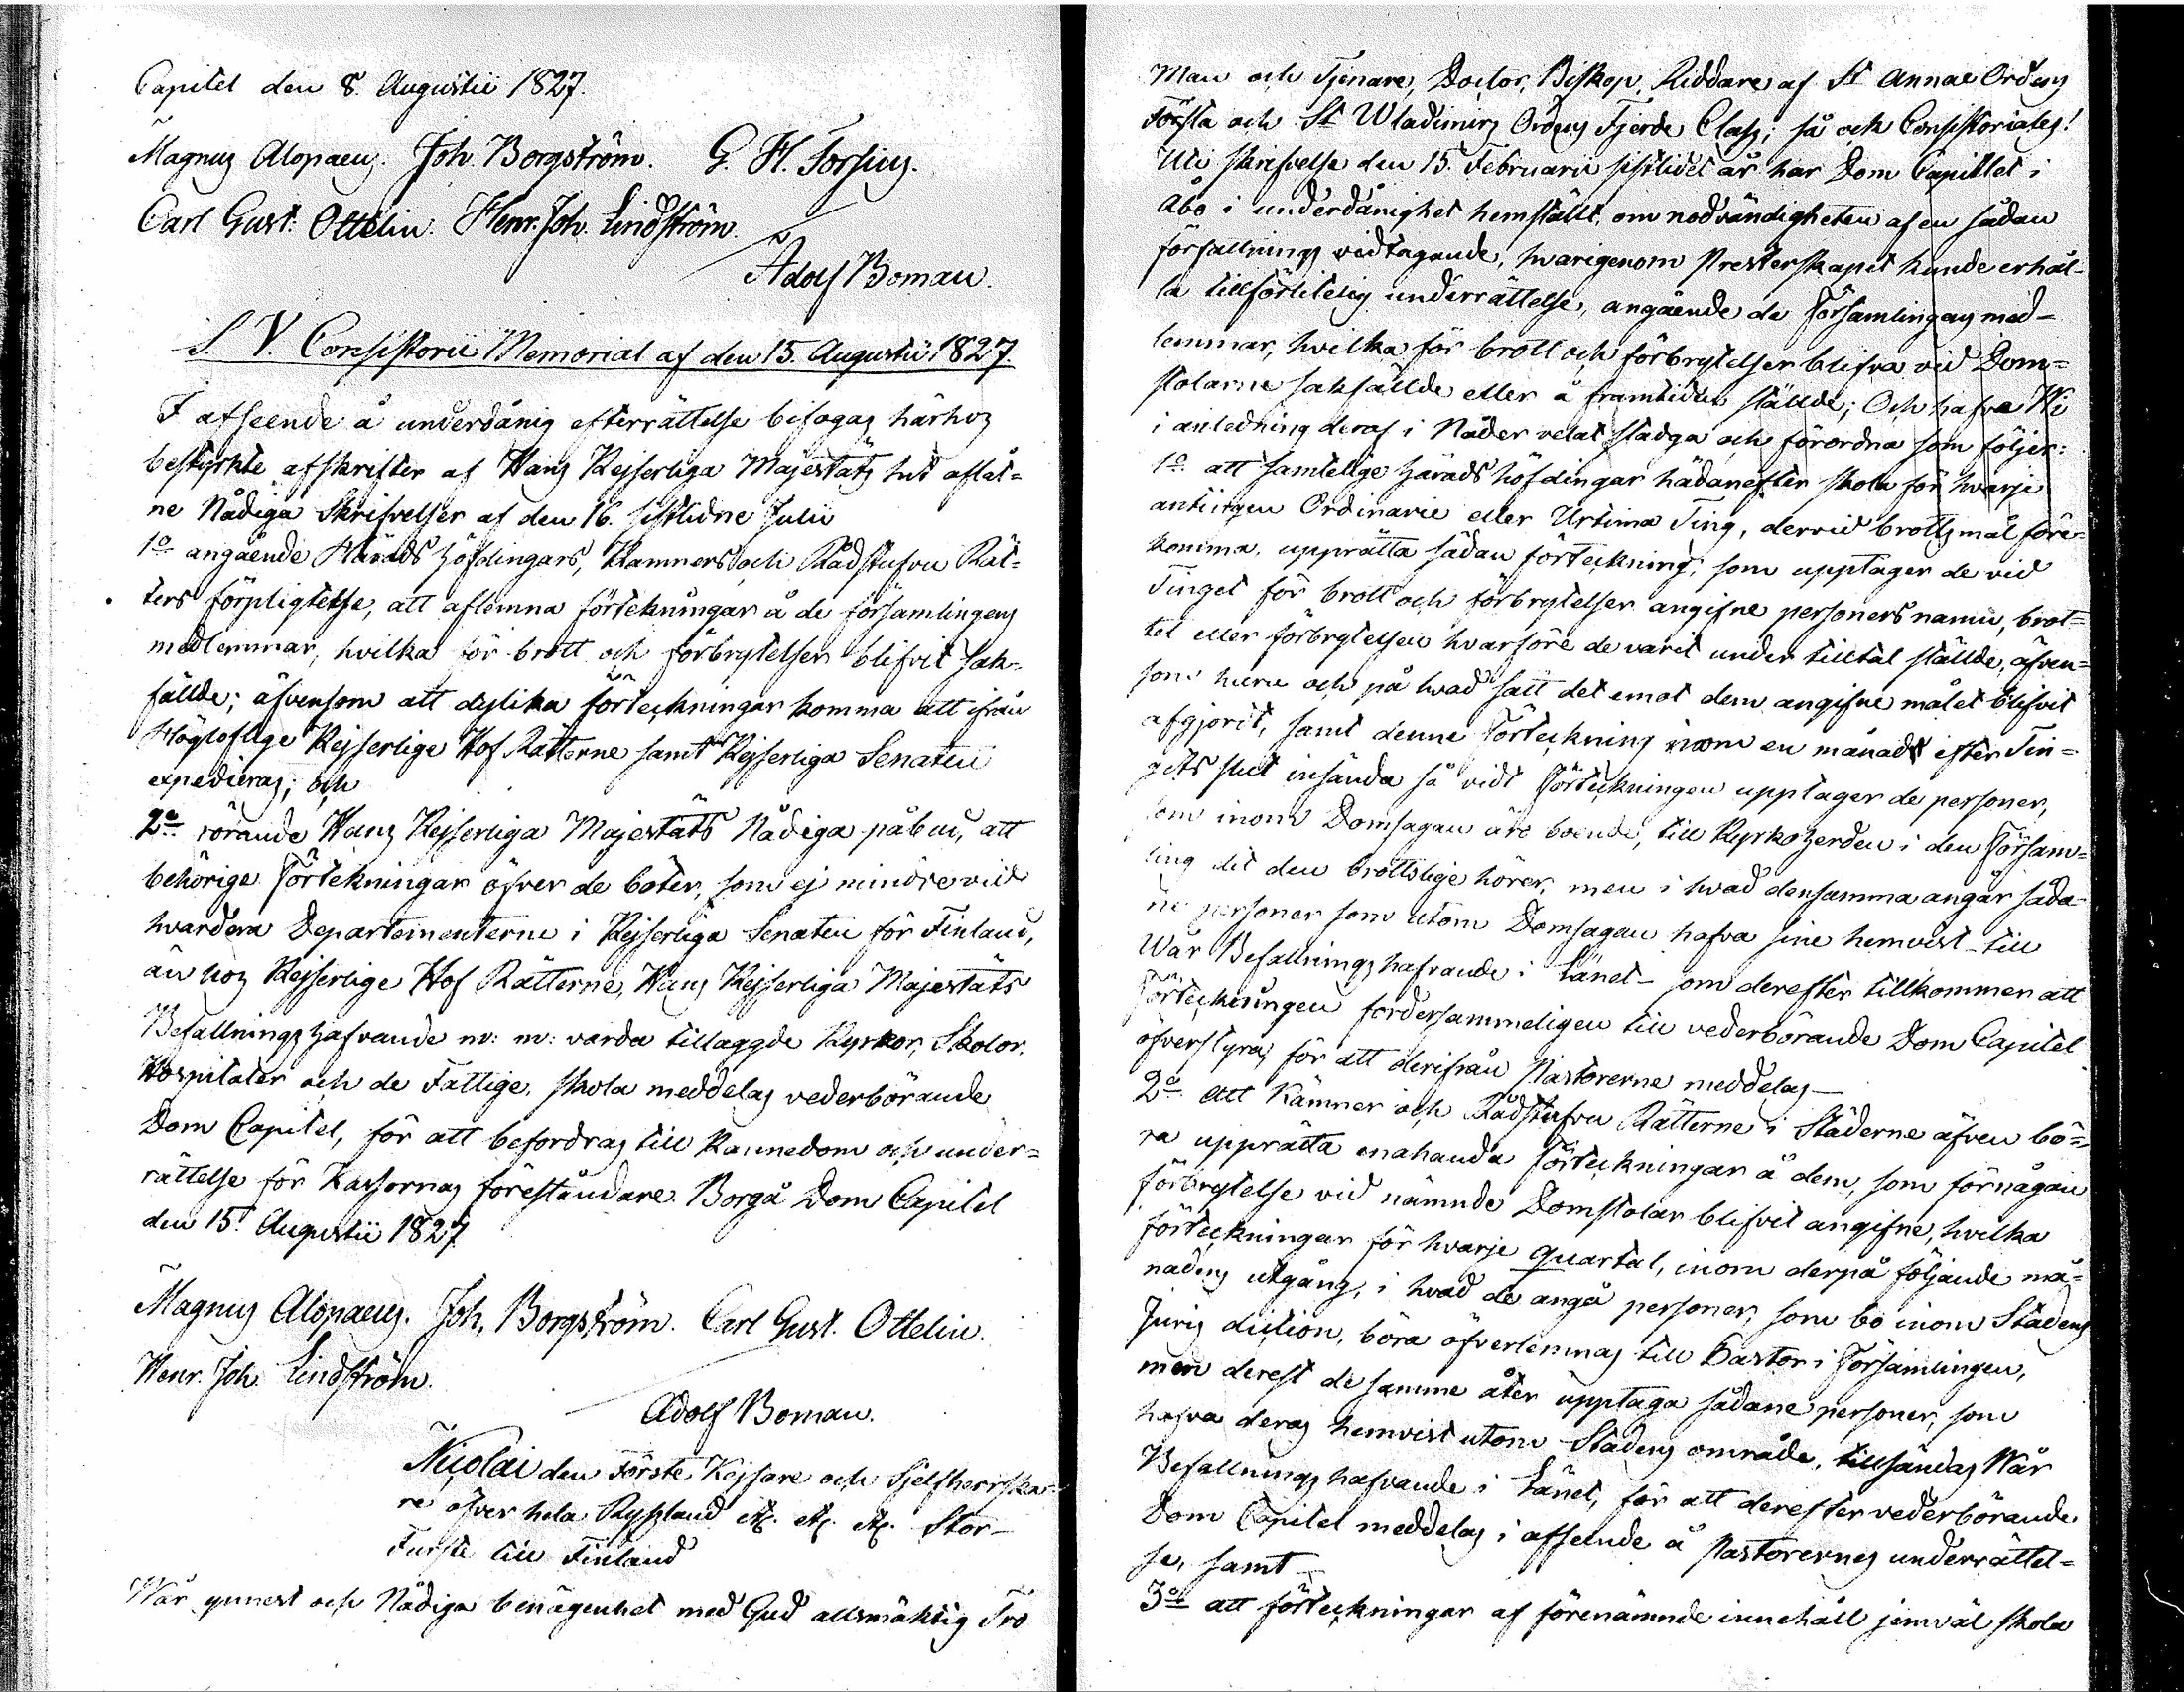 Capitel den 8. Augustii 1827.
Magnus Alopaeus. Joh. Borgström. G. H. Forsius.
Carl Gust. Ottelin. Henr. Joh. Lindström.
Adolf Boman.
S. V. Consistorii Memorial af den 15. Augustii 1827.
I afseende å underdånig efterrättelse bifogas härhos
bestyrkte afskrifter af Hans Kejserliga Majestäts hit aflåt=
ne Nådiga Skrifvelser af den 16. sistlidne Julii
1o angående Härads Höfdingars, Kämners och Rådstufvu Rät=
ters förpligtelse, att aflemna förtekningar å de församlingens
medlemmar, hvilka för brott och förbrytelser blifvit sak=
fällde; äfvensom att dylika förteckningar komma att ifrån
Högloflige Kejserlige Hof Rätterne samt Kejserliga Senaten
expedieras; och
2o rörande Hans Kejserliga Majestäts Nådiga påbud, att
behörige Förtekningar öfver de böter, som ej mindre vid
hvardera Departementerne i Kejserliga Senaten för Finland,
än hos Kejserlige Hof Rätterne, Hans Kejserliga Majestäts
Befallningshafvande m: m: varda tillaggde Kyrkor, Skolor,
Hospitaler och de Fattige, skola meddelas vederbörande
Dom Capitel, för att befordras till kännedom och under=
rättelse för Kassornas föreståndare. Borgå Dom Capitel
den 15. Augustii 1827
Magnus Alopaeus. Joh. Borgström. Carl Gust. Ottelin.
Henr. Joh. Lindström.
Adolf Boman.
Nicolai den Förste, Kejsare och Sjelfherrska=
re öfver hela Ryssland etc. etc. etc. Stor-
Furste till Finland
Wår ynnest och Nådiga benägenhet med Gud allsmäktig Tro
Man och Tjenare, Doctor, Biskop, Riddare af St Annae Ordens
Första och St Wladimirs Ordens Fjerde Class; så och Consistoriales!
Uti skrifvelse den 15. Februarii sistlidet år har Dom Capitlet i
Åbo i underdånighet hemställt, om nödvändigheten af en sådan
författnings vidtagande, hvarigenom Presterskapet kunde erhål-
la tillförlitelig underrättelse, angående de Församlingens med-
lemmar, hvilka för brott och förbrytelser blifva vid Dom=
stolarne sakfällde eller å framtiden ställde; Och hafva Wi
i anledning deraf i Nåder velat stadga och förordna som följer:
1o att samtelige Häradshöfdingar hädanefter skola för hvarje
antingen Ordinarie eller Urtima Ting, dervid brottsmål före=
komma, upprätta sådan förteckning, som upptager de vid
Tinget för brott och förbrytelser angifne personers namn, brot=
tet eller förbrytelsen hvarföre de varit under tilltal ställde, äfven=
som huru och på hvad sätt det emot dem angifne målet blifvit
afgjordt, samt denne Förteckning inom en månad efter Tin=
gets slut insända så vidt Förteckningen upptager de personer,
som inom Domsagan äro boende, till Kyrkoherden i den Försam=
ling dit den brottslige hörer, men i hvad densamma angår såda-
ne personer som utom Domsagan hafva sine hemvist till
Wår Befallningshafvande i Länet - som derefter tillkommer att
Förteckningen fordersammeligen till vederbörande Dom Capitel
öfverstyra, för att derifrån Pastorerne meddelas -
2o Att Kämner och Rådstufvu Rätterne i Städerne äfven bö=
ra upprätta enahanda Förteckningar å dem, som för någon
förbrytelse vid nämnde Domstolar blifvit angifne, hvilka
förteckningar för hvarje quartal, inom derpå följande må=
nads utgång, i hvad de angå personer, som bo inom Stadens
Juris diction, böra öfverlemnas till Pastor i Församlingen,
men derest de samme åter upptaga sådane personer, som
hafva deras hemvist utom Stadens område, tillsändas Wår
Befallningshafvande i Länet, för att derefter vederbörande
Dom Capitel meddelas i afseende å Pastorernes underrättel=
se, samt -
3o att förteckningar af förenämnde innehåll jemväl skola